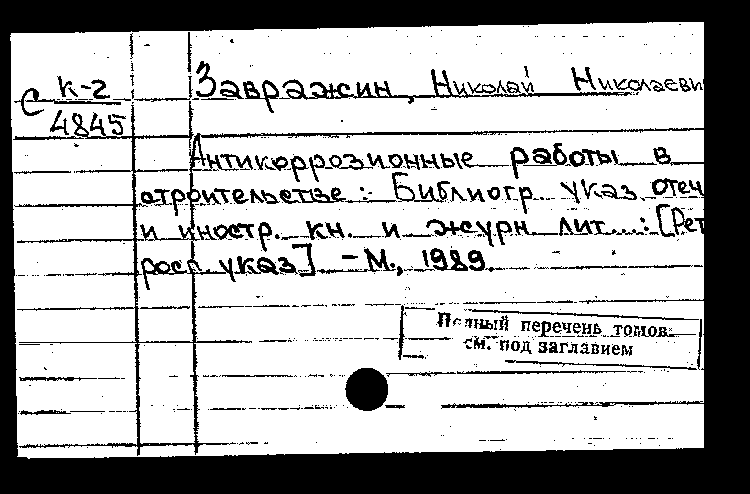 С К-2
4845
Завражин, Николай Николаеви
Антикоррозионные работы в
строительстве: Библиогр. указ. отеч
и иностр. кн. и журн. лит... : [Рет
росп. указ]. - М., 1989.
Полный перечень томов
см. под заглавием